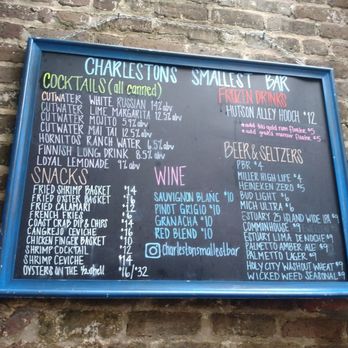 CHARLESTONS SMALLEST BAR
COCKTAILS (all canned)
CUTWATER WHITE RUSSIAN 14% abv
CUTWATER LIME MARGARITA 12.5% abv
CUTWATER MOJITO 5.9% abv
CUTWATER MAI TAI 12.5% abv
HORNITOS RANCH WATER 6.5% abv
FINNISH LONG DRINK 8.5% abv
LOYAL LEMONADE 9% abv
FROZEN DRINKS
HUTSON ALLEY HOOCH $12
floater $5
floater $5
SNACKS
FRIED SHRIMP BASKET $14
FRIED OYSTER BASKET
FRIED CALAMARI
FRENCH FRIES
COAST CRAB DIP & CHIPS $14
CANGREJO CEVICHE $16
CHICKEN FINGER BASKET $10
SHRIMP COCKTAIL $12
SHRIMP CEVICHE $14
OYSTERS ON THE ½ shell $16/$32
WINE
SAUVIGNON BLANC $10
PINOT GRIGIO $10
GRANACHA $10
RED BLEND $10
charlestonsmallestbar
BEER & SELTZERS
PBR $4
MILLER HIGH LIFE $4
HEINEKEN ZERO $5
BUD LIGHT $6
MICH ULTRA $6
ESTUARY 25 ISLAND WIDE IPA $9
COMMONHOUSE $9
ESTUARY LIMA DE NOCHE $9
PALMETTO AMBER ALE $9
PALMETTO LAGER $9
HOLY CITY WASHOUT WHEAT $9
WICKED WEED SEASONAL $9